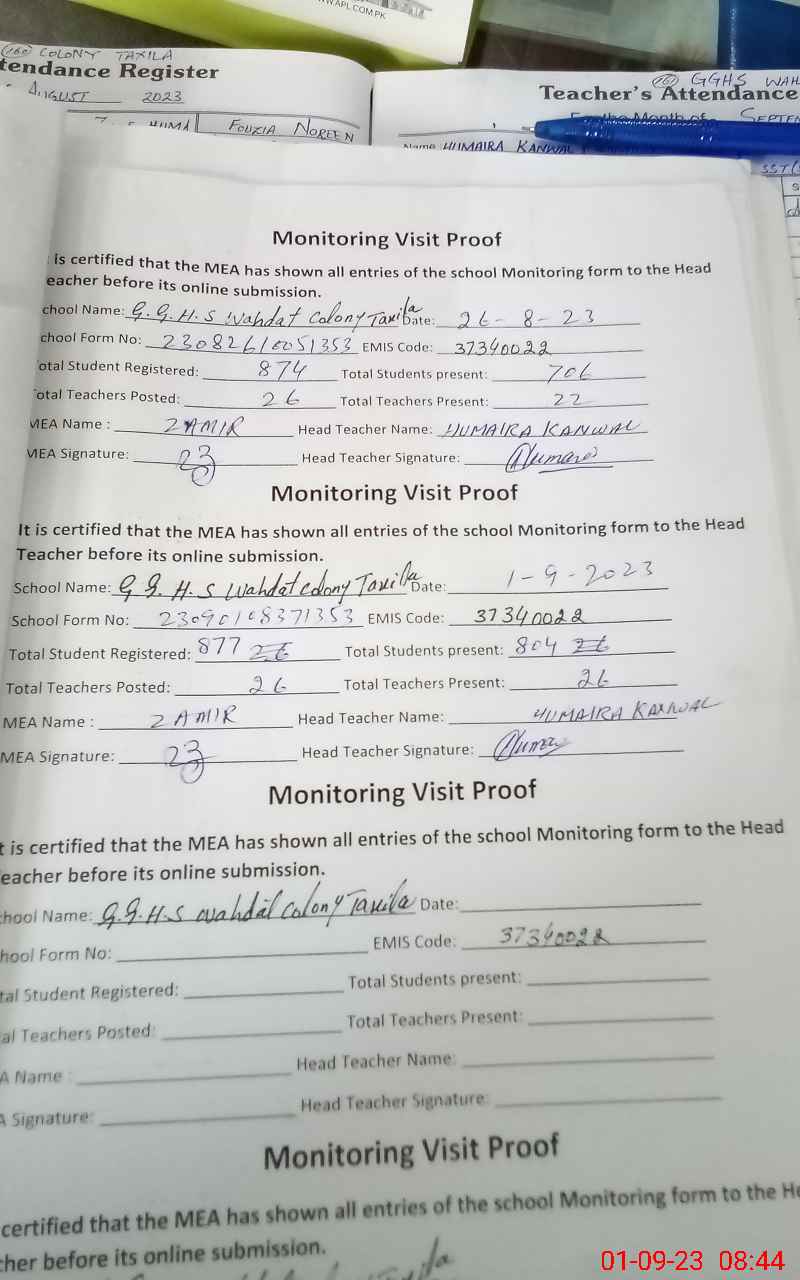 WW.APL.COM.PK
(160) COLONY TAXILA
tendance Register
AUGUST 2023
HUMA FOUZIA NOREEN
(161) GGHS WAH
Teacher's Attendance
For the Month of SEPTEM
Name HUMAIRA KANWAL
SST(
Monitoring Visit Proof
is certified that the MEA has shown all entries of the school Monitoring form to the Head
eacher before its online submission.
chool Name: G.G.H.S Wahdat Colony Taxila Date: 26-8-23
chool Form No: 23082610051353 EMIS Code: 37340022
otal Student Registered: 874 Total Students present: 706
otal Teachers Posted: 26 Total Teachers Present: 22
MEA Name : ZAMIR Head Teacher Name: HUMAIRA KANWAL
MEA Signature: Head Teacher Signature: Humaira
Monitoring Visit Proof
It is certified that the MEA has shown all entries of the school Monitoring form to the Head
Teacher before its online submission.
School Name: G.G.H.S Wahdat colony Taxila Date: 1-9-2023
School Form No: 23090108371353 EMIS Code: 37340022
Total Student Registered: 877 26 Total Students present: 804 26
Total Teachers Posted: 26 Total Teachers Present: 26
MEA Name : ZAMIR Head Teacher Name: HUMAIRA KANWAL
MEA Signature: Head Teacher Signature: Humaira
Monitoring Visit Proof
t is certified that the MEA has shown all entries of the school Monitoring form to the Head
eacher before its online submission.
chool Name: G.G.H.S Wahdat Colony Taxila Date:
hool Form No: EMIS Code: 37340022
tal Student Registered: Total Students present:
al Teachers Posted: Total Teachers Present:
A Name : Head Teacher Name:
A Signature: Head Teacher Signature:
Monitoring Visit Proof
certified that the MEA has shown all entries of the school Monitoring form to the He
cher before its online submission.
01-09-23 08:44